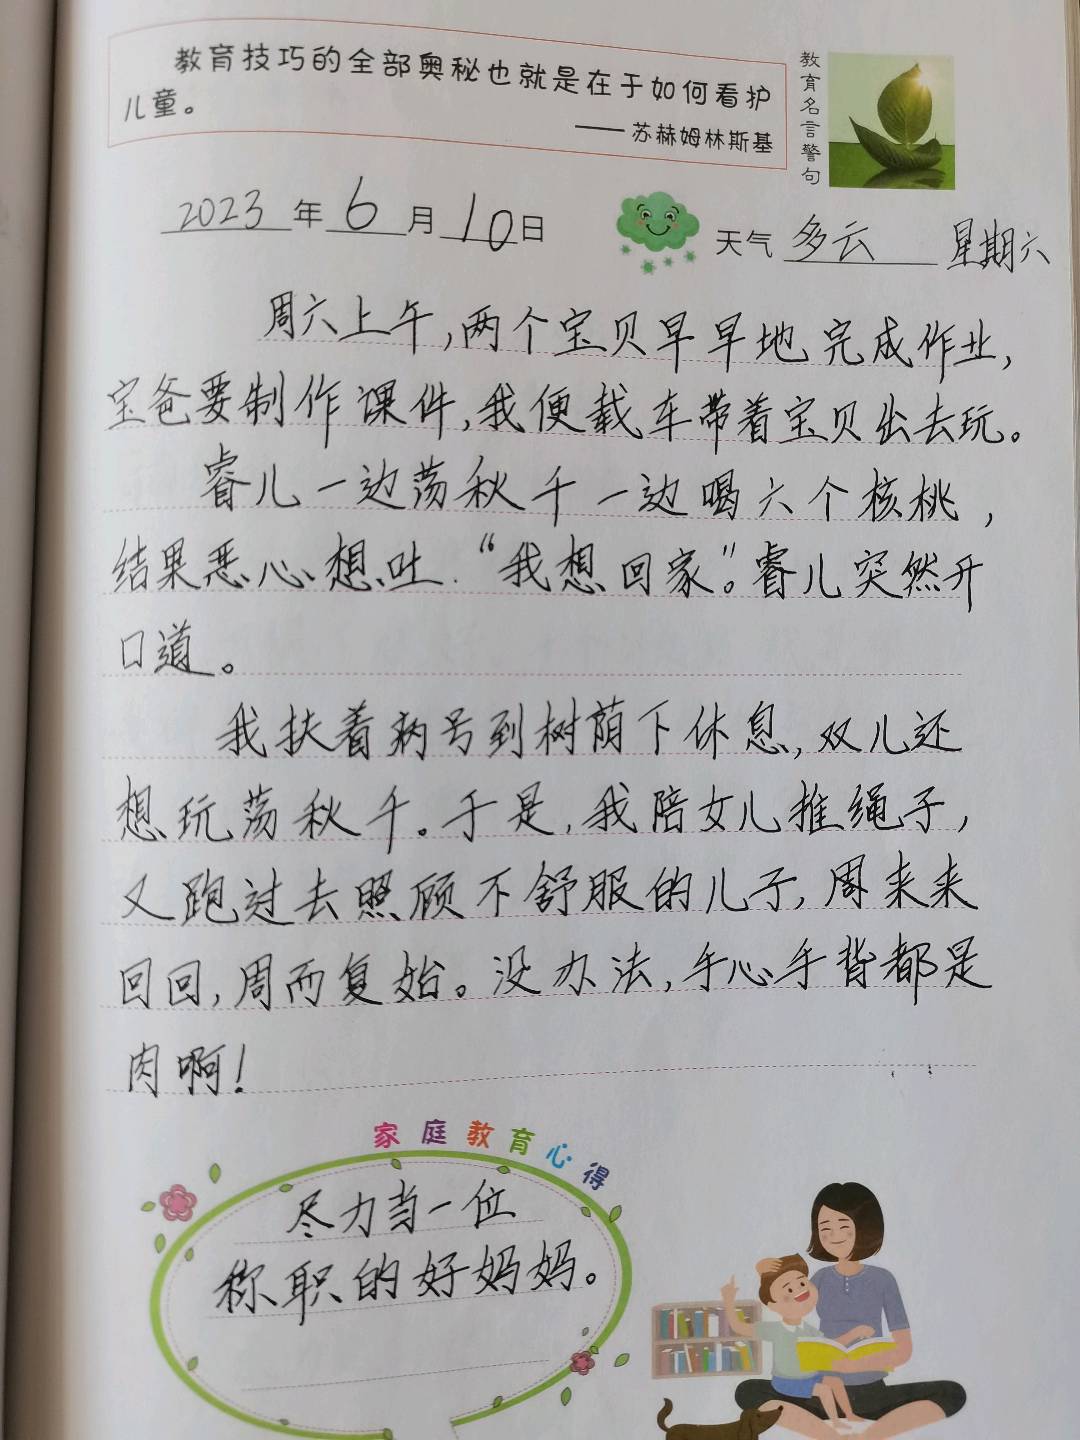 教育技巧的全部奥秘也就是在于如何看护
儿童。
——苏赫姆林斯基
教育名言警句
2023年6月10日
天气 多云 星期六
周六上午,两个宝贝早早地完成作业,
宝爸要制作课件,我便载车带着宝贝出去玩。
睿儿一边荡秋千一边喝六个核桃,
结果恶心想吐.“我想回家”。睿儿突然开
口道。
我扶着病号到树荫下休息,双儿还
想玩荡秋千。于是,我陪女儿推绳子,
又跑过去照顾不舒服的儿子,周来来
回回,周而复始。没办法,手心手背都是
肉啊!
家庭教育心得
尽力当一位
称职的好妈妈。